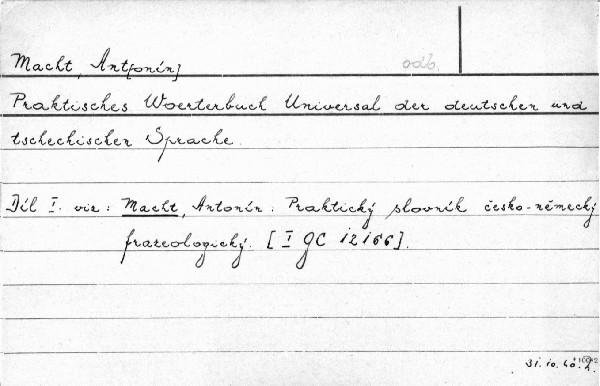 Macht, Ant[onín] odb.
Praktisches Woerterbuch Universal der deutschen und
tschechischen Sprache.
Díl I. viz: Macht, Antonín: Praktický slovník česko-německý
frazeologický. [I GC 12166].
31.10.60.